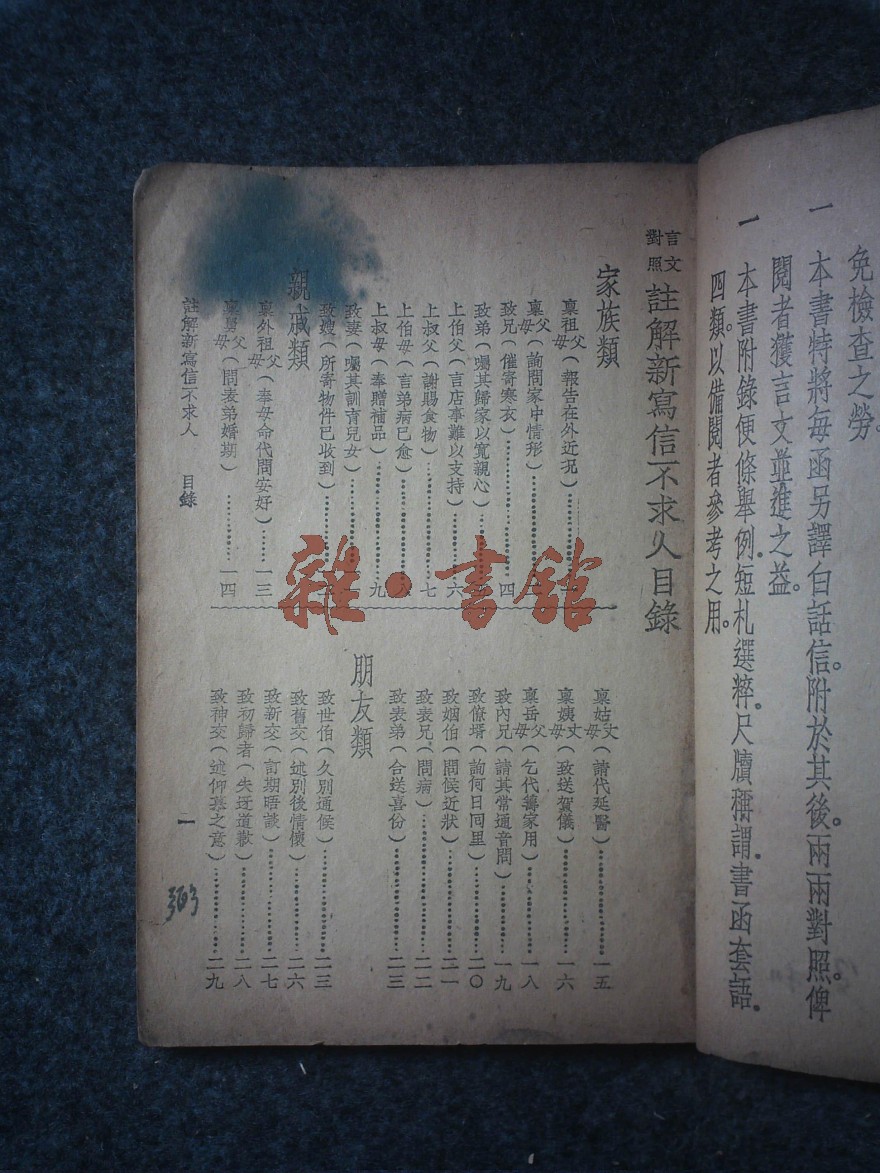 免檢查之勞。
一 本書特將每函另譯白話信。附於其後。兩兩對照。俾
閱者獲言文並進之益。
一 本書附錄便條舉例。短札選粹。尺牘稱謂。書函套語。
四類。以備閱者參考之用。
言文對照 註解新寫信不求人目錄
家族類
稟祖父母(報告在外近況)
稟父母(詢問家中情形)
致兄(催寄寒衣)……四
致弟(囑其歸家以寬親心)
上伯父(言店事難以支持)……六
上叔父(謝賜食物)……七
上伯母(言弟病已愈)……八
上叔母(奉贈補品)……九
致妻(囑其訓育兒女)
致嫂(所寄物件已收到)
親戚類
稟外祖父母(奉母命代問安好)……一三
稟舅父母(問表弟婚期)……一四
稟姑丈母(請代延醫)……一五
稟姨丈母(致送賀儀)……一六
稟岳父母(乞代籌家用)……一八
致內兄(請其常通音問)……一九
致僚壻(詢何日回里)……二〇
致姻伯(問候近狀)……二一
致表兄(問病)……二二
致表弟(合送喜份)……二三
朋友類
致世伯(久別通候)……二三
致舊交(述別後情懷)……二六
致新交(訂期晤談)……二七
致初歸者(失迓道歉)……二八
致神交(述仰慕之意)……二九
註解新寫信不求人 目錄
一
雜·書館